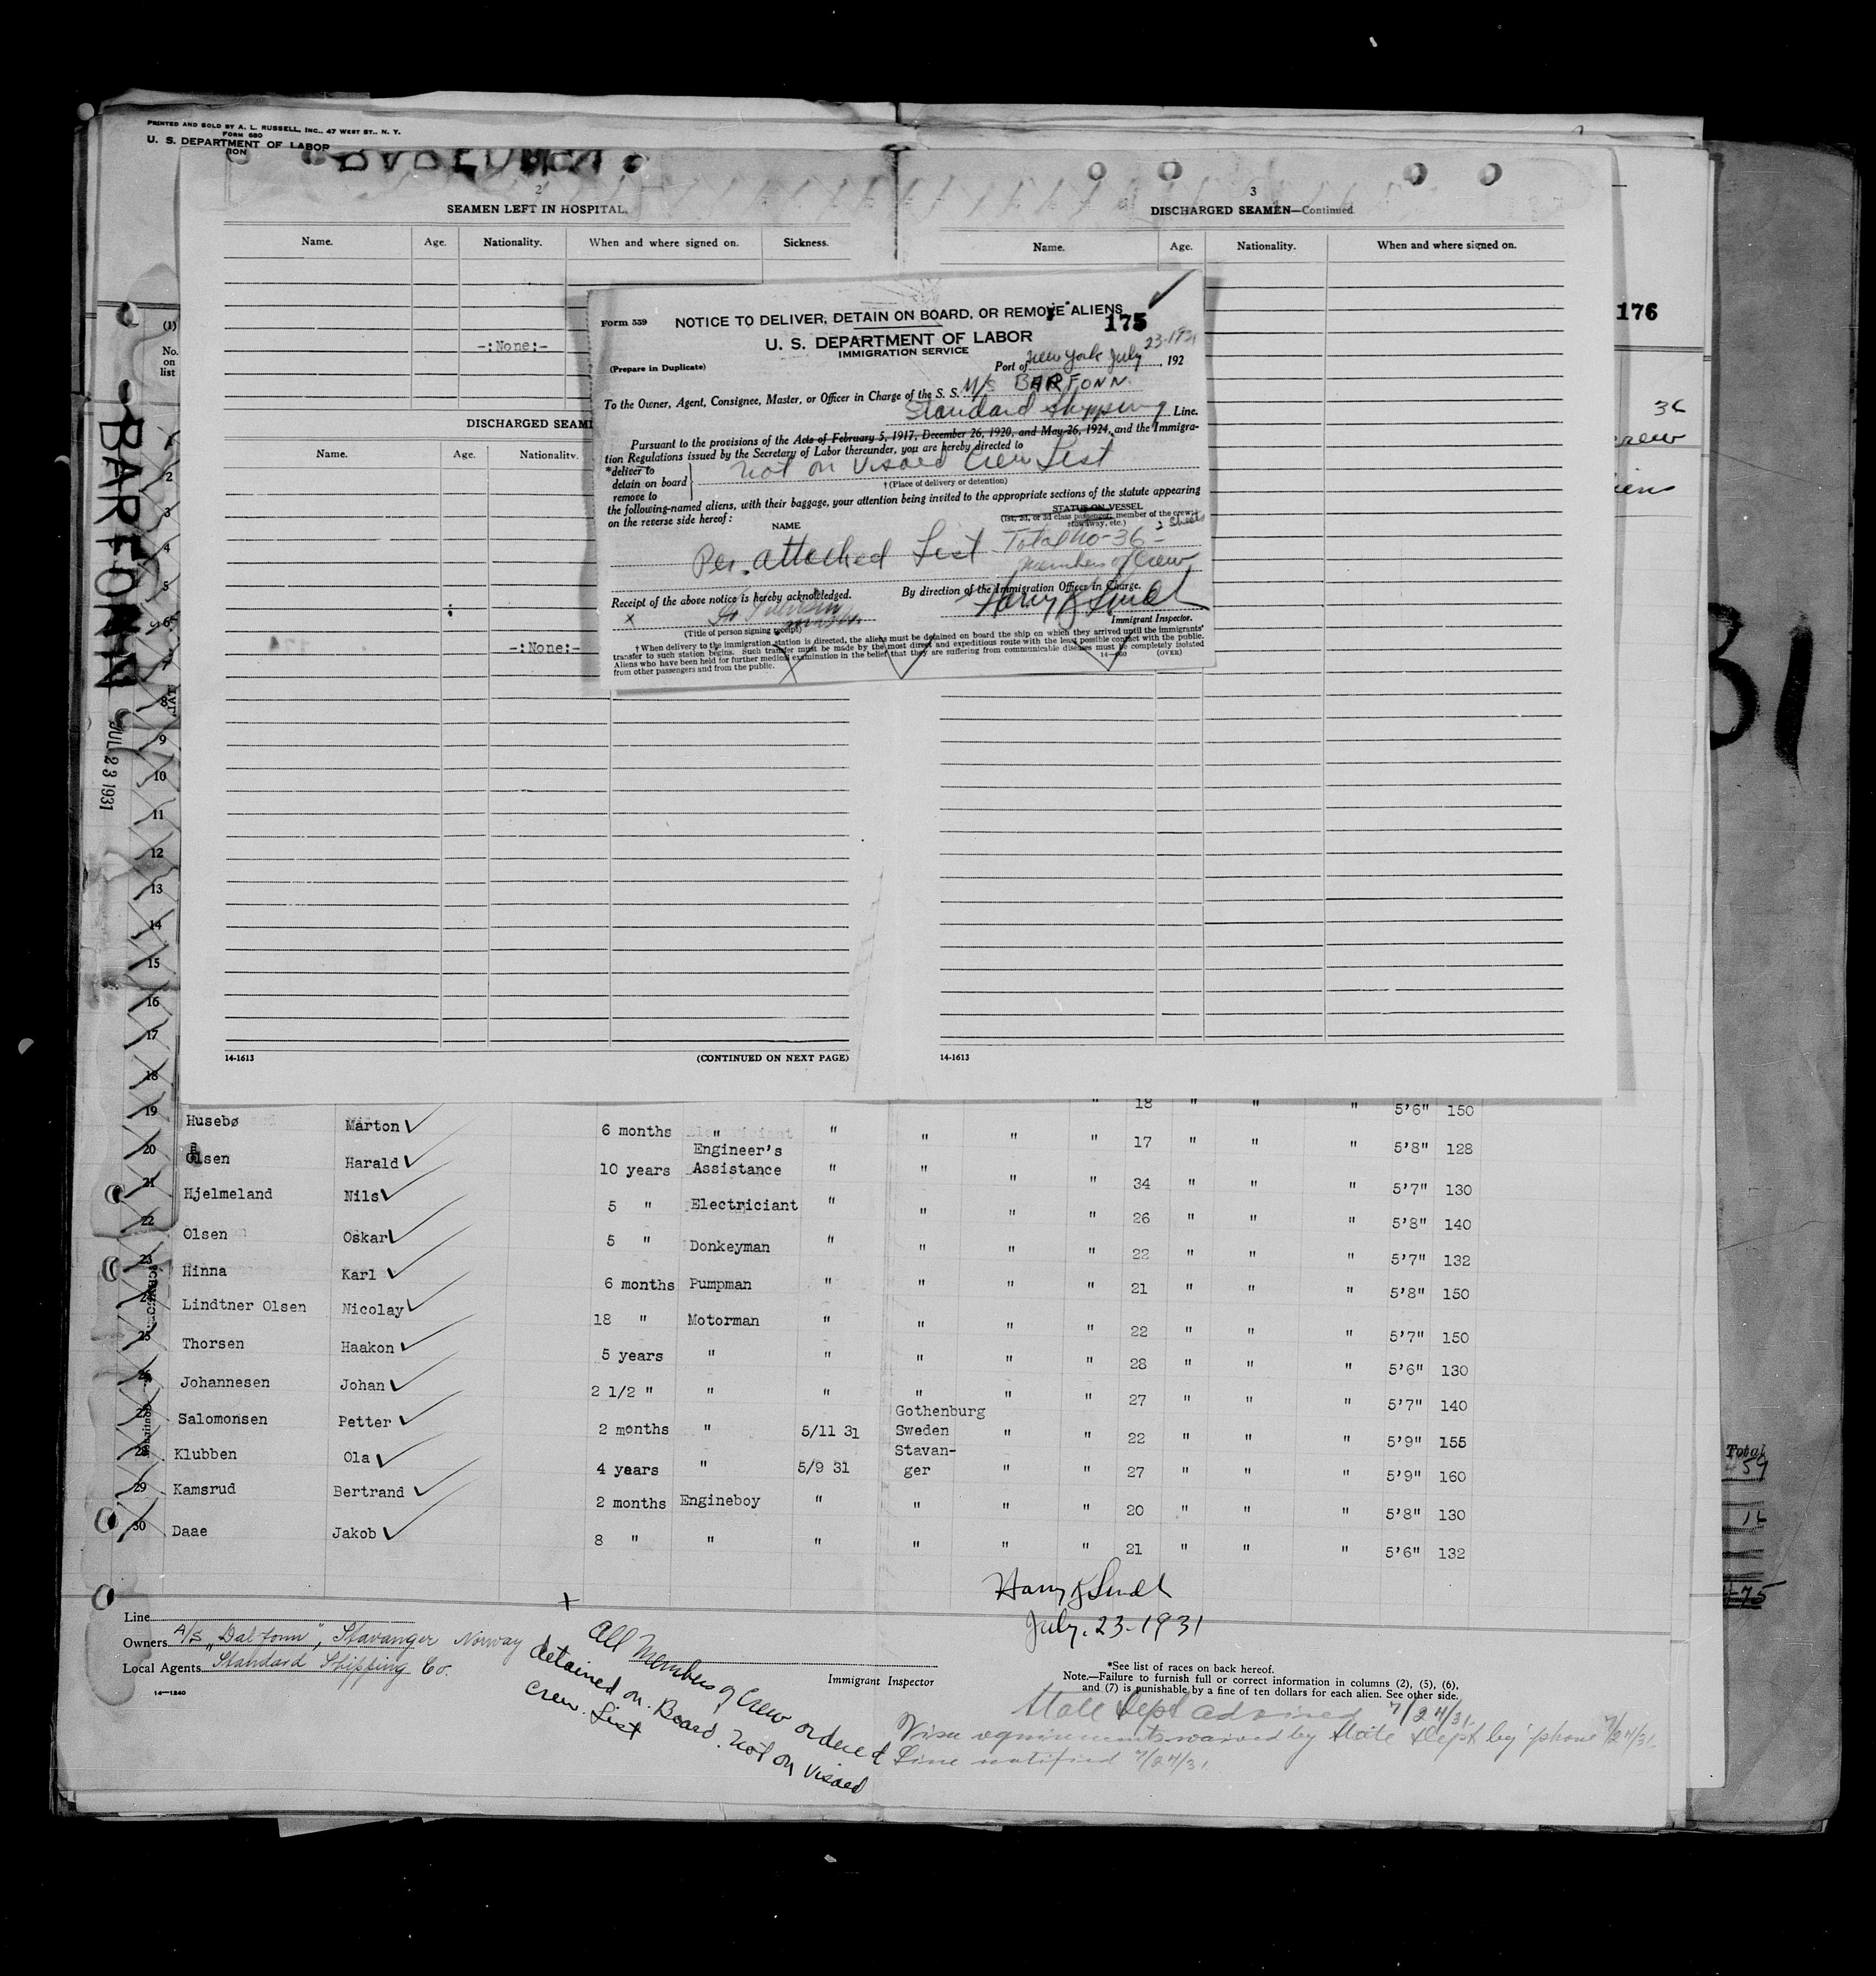 PRINTED AND SOLD BY A. L. RUSSELL, INC., 47 WEST ST., N. Y.
FORM 680
U. S. DEPARTMENT OF LABOR
2
SEAMEN LEFT IN HOSPITAL.
Name. Age. Nationality. When and where signed on. Sickness.
-:None:-
DISCHARGED SEAM
Name. Age. Nationality.
-:None:-
14-1613 (CONTINUED ON NEXT PAGE)
3
DISCHARGED SEAMEN—Continued
Name. Age. Nationality. When and where signed on.
14-1613
176
36
31
Form 559 NOTICE TO DELIVER, DETAIN ON BOARD, OR REMOVE ALIENS
175
U. S. DEPARTMENT OF LABOR
IMMIGRATION SERVICE
(Prepare in Duplicate) Port of New York July 23-1931, 192
To the Owner, Agent, Consignee, Master, or Officer in Charge of the S. S. M/S BARFONN
Standard Shipping Line.
Pursuant to the provisions of the Acts of February 5, 1917, December 26, 1920, and May 26, 1924, and the Immigra-
tion Regulations issued by the Secretary of Labor thereunder, you are hereby directed to
*deliver to
detain on board Not on Visaed Crew List
remove to †(Place of delivery or detention)
the following-named aliens, with their baggage, your attention being invited to the appropriate sections of the statute appearing
on the reverse side hereof:
NAME STATUS ON VESSEL
(1st, 2d, or 3d class passenger, member of the crew, stowaway, etc.)
2 Sheets
Per attached List Total No-36-
Members of Crew
Receipt of the above notice is hereby acknowledged. By direction of the Immigration Officer in Charge.
x
(Title of person signing receipt) Immigrant Inspector.
†When delivery to the immigration station is directed, the aliens must be detained on board the ship on which they arrived until the immigrants'
transfer to such station begins. Such transfer must be made by the most direct and expeditious route with the least possible contact with the public.
Aliens who have been held for further medical examination in the belief that they are suffering from communicable diseases must be completely isolated
from other passengers and from the public. (OVER)
BARFONN
JUL 23 1931
(1)
No.
on
list
1
2
3
4
5
6
7
8
9
10
11
12
13
14
15
16
17
18
19 Husebø Marton 6 months " " " " " 18 " " " 5'6" 150
20 Olsen Harald 10 years Engineer's Assistance " " " " 17 " " " 5'8" 128
21 Hjelmeland Nils 5 " Electriciant " " " " 34 " " " 5'7" 130
22 Olsen Oskar 5 " Donkeyman " " " " 26 " " " 5'8" 140
23 Hinna Karl 6 months Pumpman " " " " 22 " " " 5'7" 132
24 Lindtner Olsen Nicolay 18 " Motorman " " " " 21 " " " 5'8" 150
25 Thorsen Haakon 5 years " " " " " 22 " " " 5'7" 150
26 Johannesen Johan 2 1/2 " " " " " " 28 " " " 5'6" 130
27 Salomonsen Petter 2 months " 5/11 31 Gothenburg Sweden " " 27 " " " 5'7" 140
28 Klubben Ola 4 years " 5/9 31 Stavan-ger " " 22 " " " 5'9" 155
29 Kamsrud Bertrand 2 months Engineboy " " " " 27 " " " 5'9" 160
30 Daae Jakob 8 " " " " " " 20 " " " 5'8" 130
21 " " " 5'6" 132
July. 23-1931
Line
Owners A/S "Dalfonn", Stavanger Norway
Local Agents Standard Shipping Co.
14—1240
x
All Members of Crew ordered
detained on Board. Not on Visaed
Crew. List
Immigrant Inspector
*See list of races on back hereof.
Note.—Failure to furnish full or correct information in columns (2), (5), (6),
and (7) is punishable by a fine of ten dollars for each alien. See other side.
State Dept advised 7/24/31.
Visa requirements waived by State Dept by 'phone 7/24/31.
Line notified 7/24/31.
Total